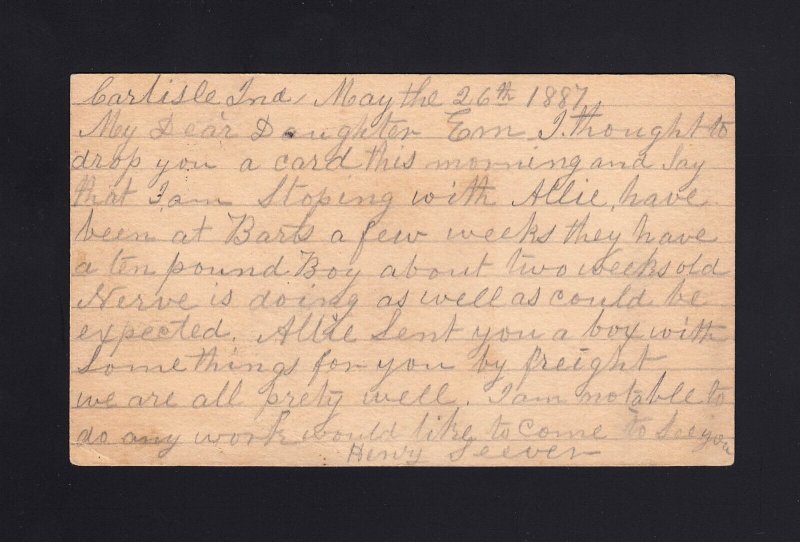 Carlisle Ind, May the 26th 1887
My Dear Daughter Em I thought to
drop you a card this morning and Say
that I am Stoping with Allie, have
been at Barts a few weeks they have
a ten pound Boy about two weeks old
Nerve is doing as well as could be
expected. Allie Sent you a box with
Some things for you by freight
we are all prety well. I am not able to
do any work would like to come to See you
Henry Seever